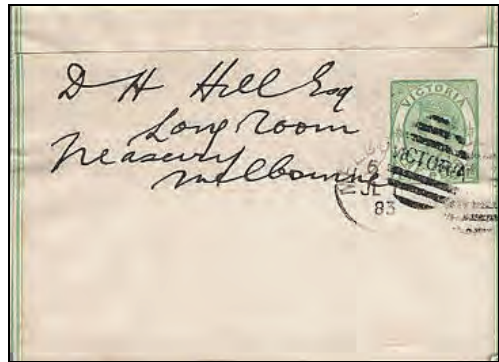 D H Hill Esq
Long Room
Treasury
Melbourne
VICTORIA
VICTORIA
JL
83